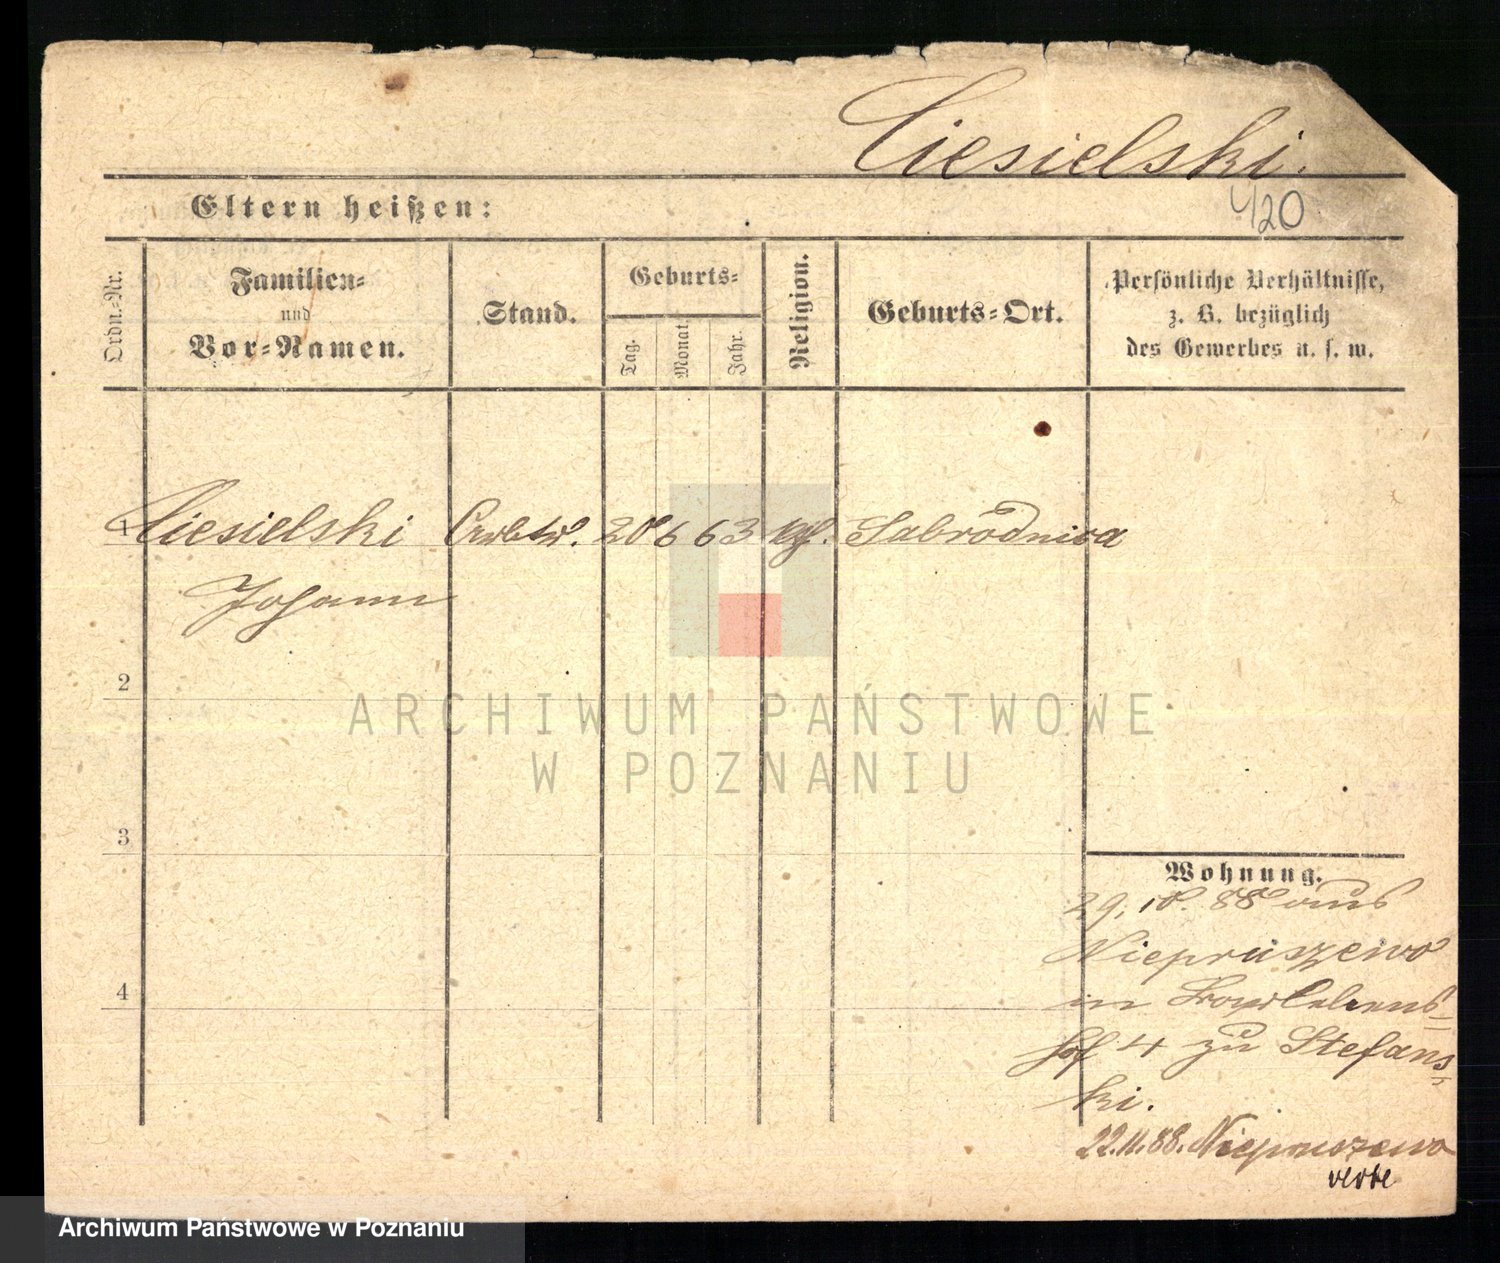 Ciesielski.
Eltern heißen:
420
Ordn.-Nr.
Familien-
und
Vor-Namen.
Stand.
Geburts-
Tag.
Monat.
Jahr.
Religion.
Geburts-Ort.
Persönliche Verhältnisse,
z. B. bezüglich
des Gewerbes u. s. w.
1 Ciesielski Arbtr. 20 6 63 kth.
Johann
2
3
4
Wohnung.
29. 10. 88 aus
Niepruszewo
in
hof 4 zu Stefans-
ki.
22.11.88. Niepruszewo
ARCHIWUM PAŃSTWOWE
W POZNANIU
Archiwum Państwowe w Poznaniu